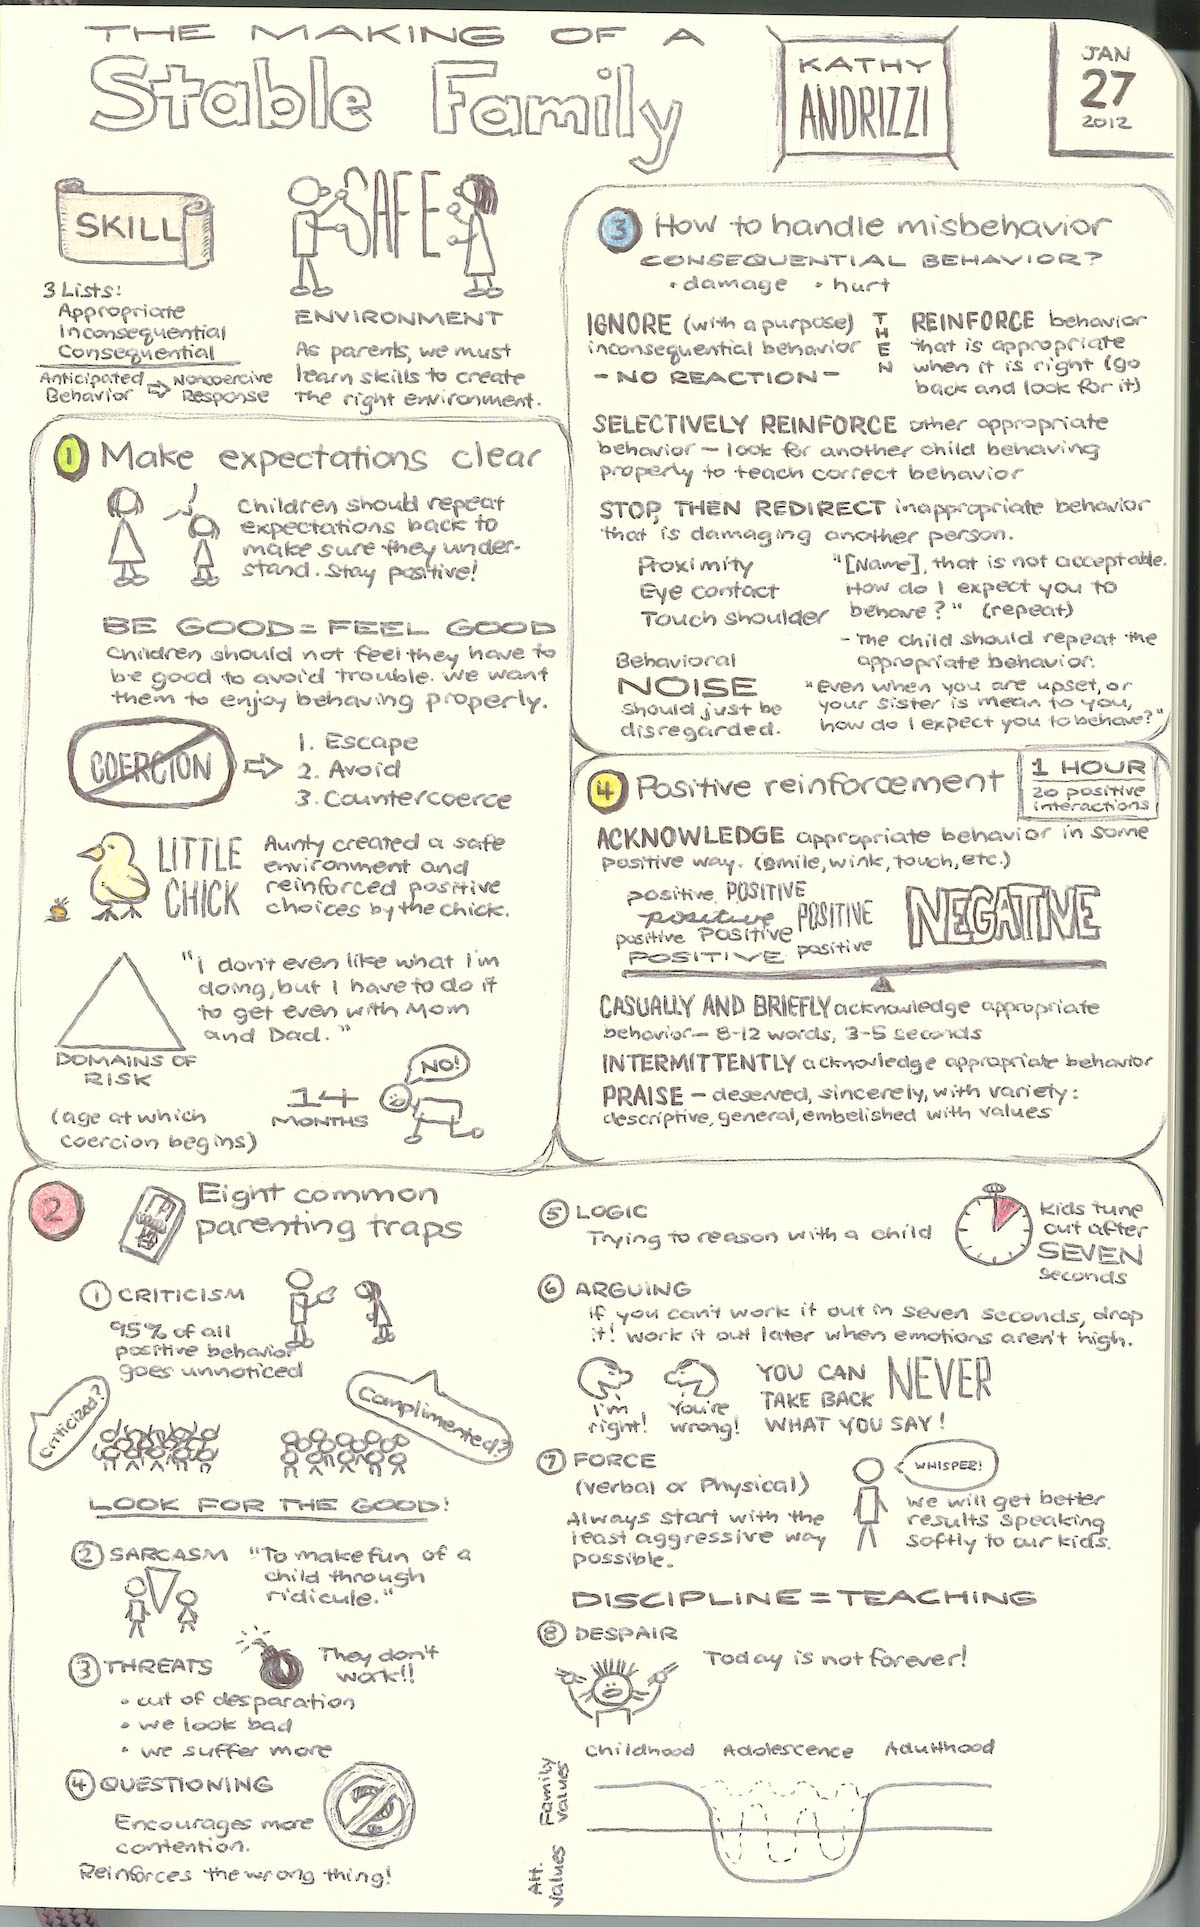 THE MAKING OF A
Stable Family
KATHY
ANDRIZZI
JAN
27
2012
SKILL
3 Lists:
Appropriate
Inconsequential
Consequential
Anticipated
Behavior
Noncoercive
Response
SAFE
ENVIRONMENT
As parents, we must
learn skills to create
the right environment.
1 Make expectations clear
Children should repeat
expectations back to
make sure they under-
stand. Stay positive!
BE GOOD = FEEL GOOD
Children should not feel they have to
be good to avoid trouble. We want
them to enjoy behaving properly.
COERCION
1. Escape
2. Avoid
3. Countercoerce
LITTLE
CHICK
Aunty created a safe
environment and
reinforced positive
choices by the chick.
"I don't even like what I'm
doing, but I have to do it
to get even with Mom
and Dad."
DOMAINS OF
RISK
(age at which
coercion begins)
14
MONTHS
NO!
3 How to handle misbehavior
CONSEQUENTIAL BEHAVIOR?
• damage • hurt
IGNORE (with a purpose)
inconsequential behavior
- NO REACTION -
THEN
REINFORCE behavior
that is appropriate
when it is right (go
back and look for it)
SELECTIVELY REINFORCE other appropriate
behavior - look for another child behaving
properly to teach correct behavior
STOP, THEN REDIRECT inappropriate behavior
that is damaging another person.
Proximity
Eye contact
Touch shoulder
"[Name], that is not acceptable.
How do I expect you to
behave?" (repeat)
- The child should repeat the
appropriate behavior.
Behavioral
NOISE
should just be
disregarded.
"Even when you are upset, or
your sister is mean to you,
how do I expect you to behave?"
4 Positive reinforcement
1 HOUR
20 positive
interactions
ACKNOWLEDGE appropriate behavior in some
positive way. (smile, wink, touch, etc.)
positive POSITIVE
positive POSITIVE
positive POSITIVE positive
POSITIVE
NEGATIVE
CASUALLY AND BRIEFLY acknowledge appropriate
behavior - 8-12 words, 3-5 seconds
INTERMITTENTLY acknowledge appropriate behavior
PRAISE - deserved, sincerely, with variety:
descriptive, general, embelished with values
2 Eight common
parenting traps
1 CRITICISM
95% of all
positive behavior
goes unnoticed
Criticized?
Complimented?
LOOK FOR THE GOOD!
2 SARCASM
"To make fun of a
child through
ridicule."
3 THREATS
They don't
work!!
• out of desparation
• we look bad
• we suffer more
4 QUESTIONING
Encourages more
contention.
Reinforces the wrong thing!
5 LOGIC
Trying to reason with a child
Kids tune
out after
SEVEN
seconds
6 ARGUING
If you can't work it out in seven seconds, drop
it! Work it out later when emotions aren't high.
I'm
right!
You're
wrong!
YOU CAN NEVER
TAKE BACK
WHAT YOU SAY!
7 FORCE
(Verbal or Physical)
Always start with the
least aggressive way
possible.
WHISPER!
We will get better
results speaking
softly to our kids.
DISCIPLINE = TEACHING
8 DESPAIR
Today is not forever!
Childhood Adolescence Adulthood
Family
Values
Alt.
Values